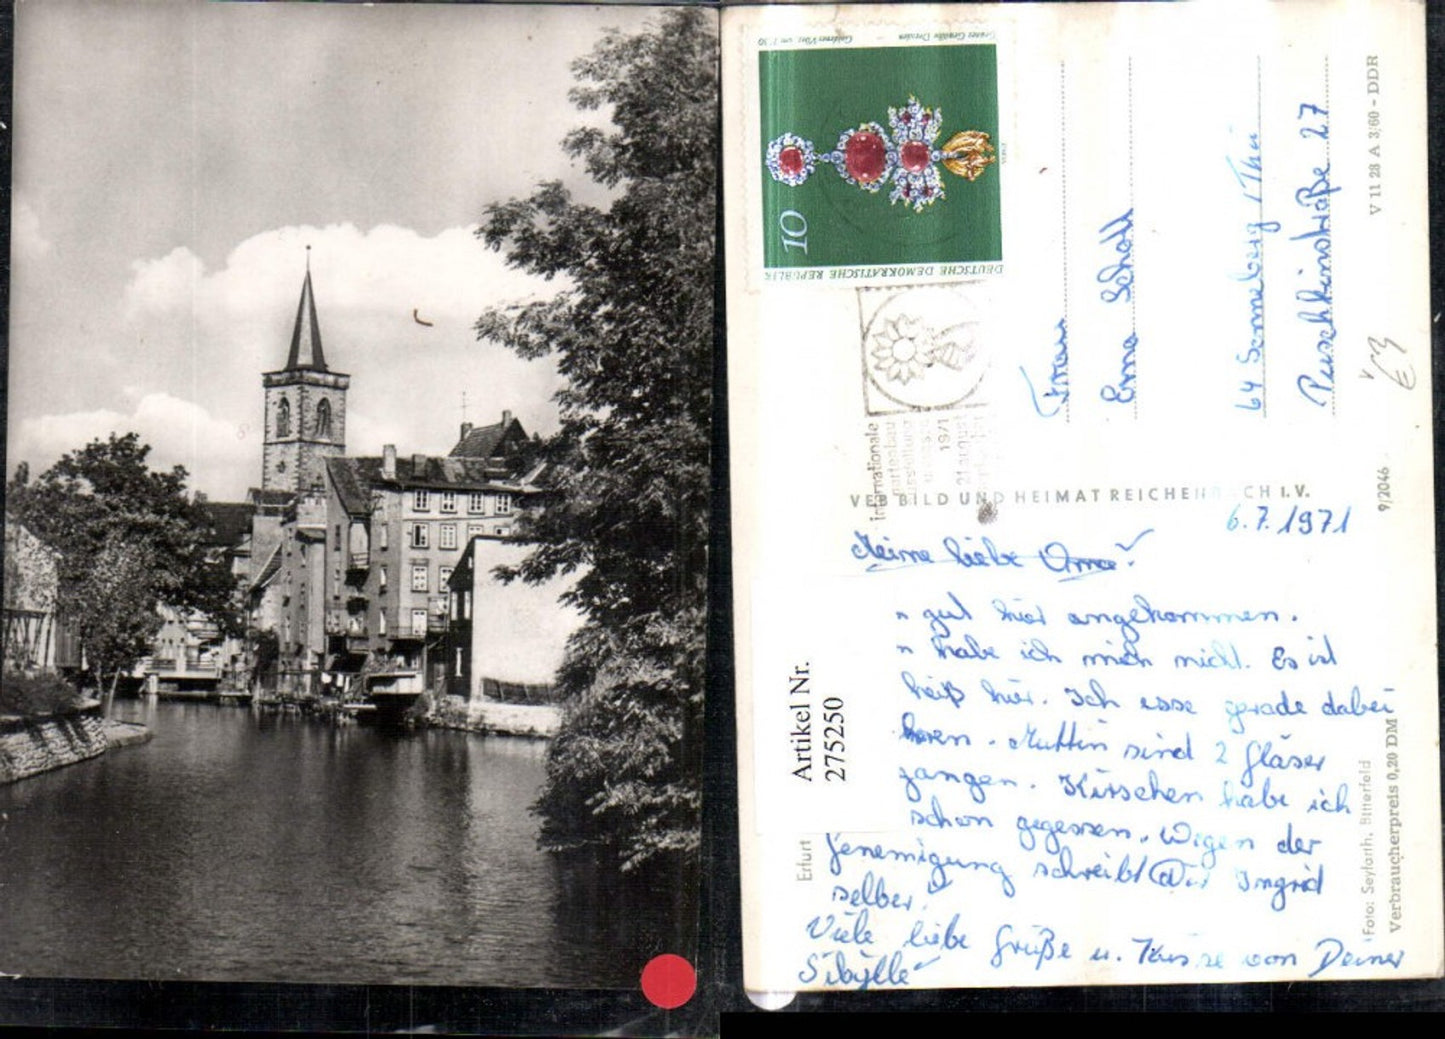 Grünes Gewölbe Dresden
Goldenes Vlies, um 1730
10
DEUTSCHE DEMOKRATISCHE REPUBLIK
internationale
gartenbau
ausstellung
1971
Frau
Erna Scholl
64 Sonneberg/Thür
Puschkinstraße 27
V 11 28 A 3/60 - DDR
€3
9/2046
VEB BILD UND HEIMAT REICHENBACH I.V.
6.7.1971
Meine liebe Oma!
" gut hier angekommen.
" habe ich mich nicht. Es ist
heiß hier. Ich esse gerade dabei
Muttin sind 2 Gläser
gangen. Kirschen habe ich
schon gegessen. Wegen der
schreibt Dir Ingrid
selber.
Viele liebe Grüße u. Küsse von Deiner
Sibylle
Artikel Nr.
275250
Erfurt
Foto: Seyfarth, Bitterfeld
Verbraucherpreis 0,20 DM